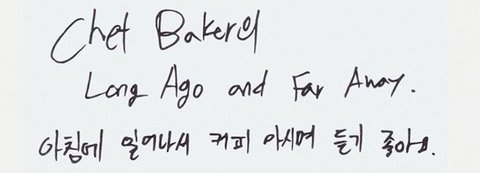 Chet Baker의
Long Ago and Far Away.
아침에 일어나서 커피 마시며 듣기 좋아요.